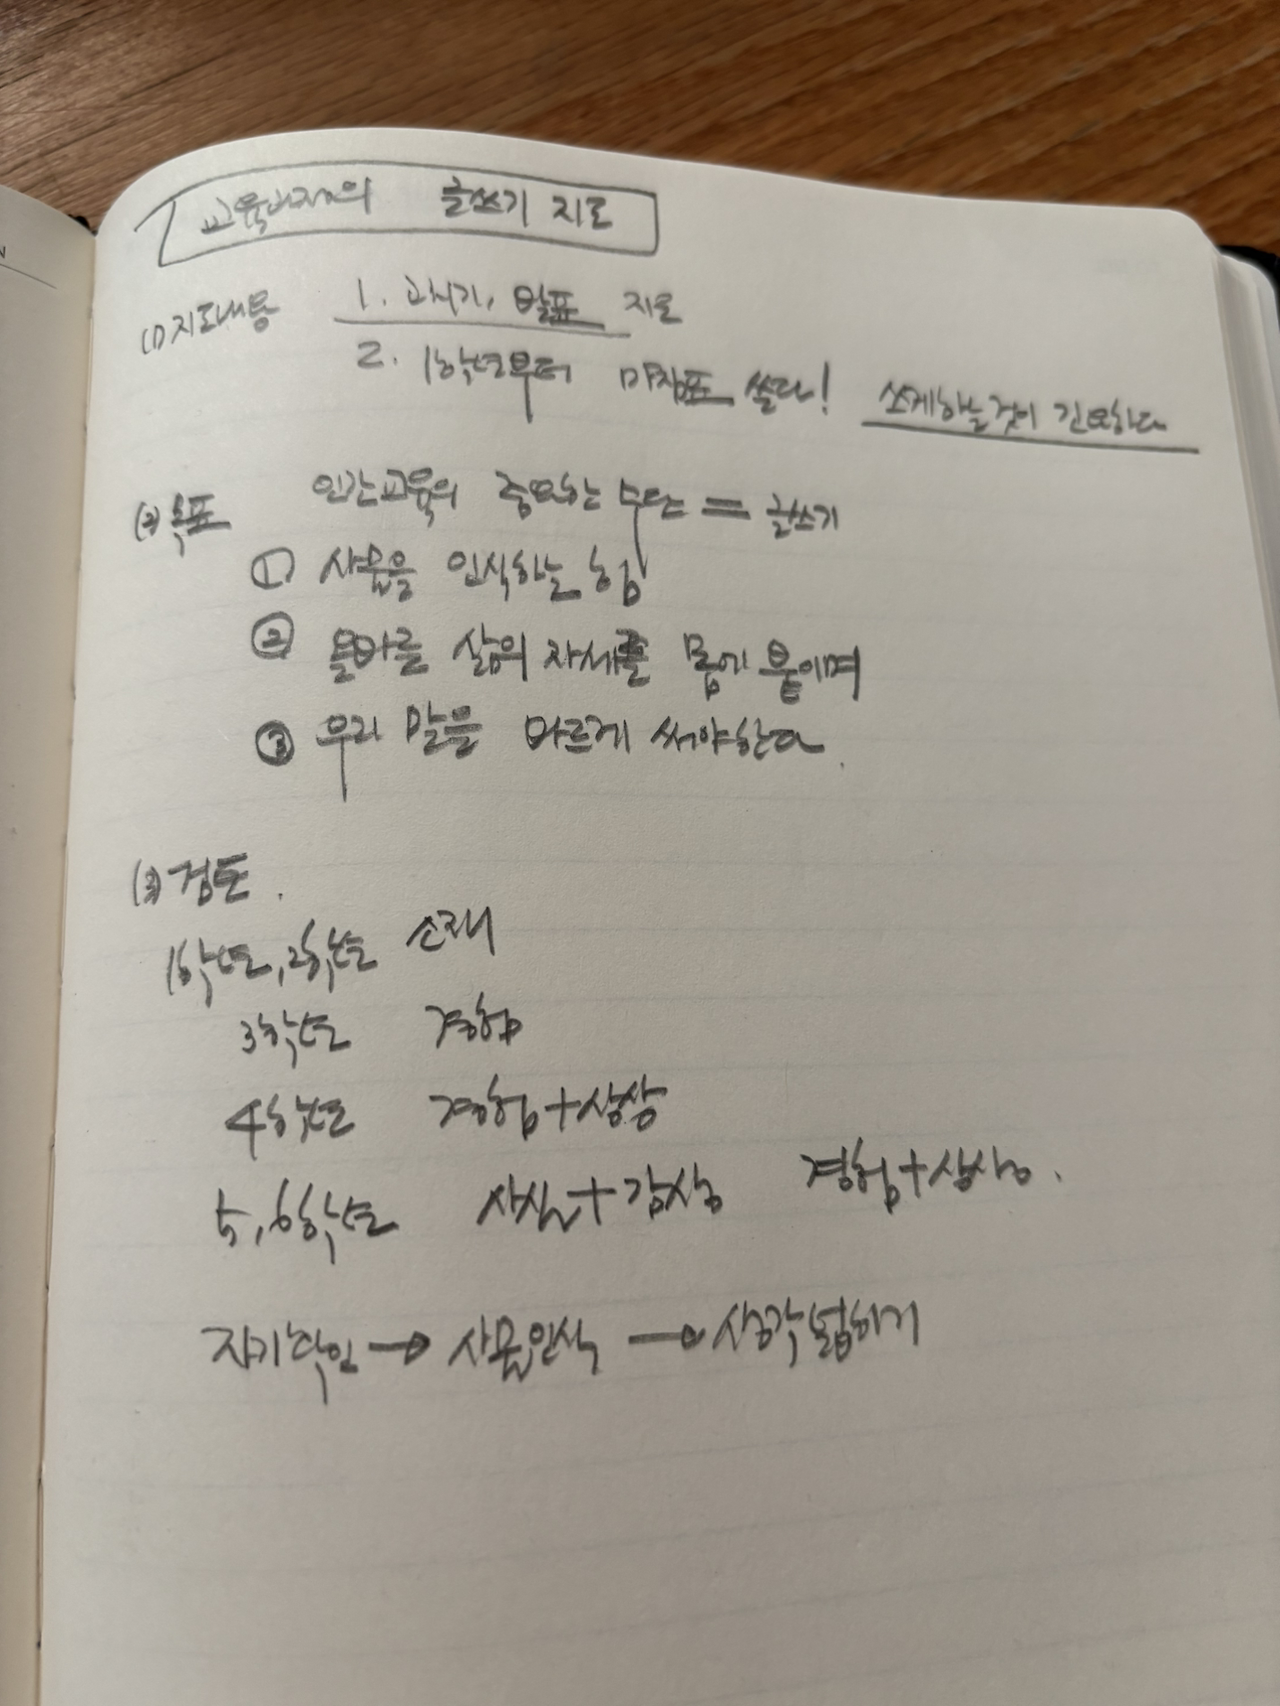 교육과정의 글쓰기 지도
(1) 지도내용 1. 고치기, 발표 지도
2. 1학년부터 마침표 쓸다! 쓰게하는것이 긴요하다
(2) 목표 인간교육의 중요한 수단 = 글쓰기
① 사물을 인식하는 힘
② 올바른 삶의 자세를 몸에 붙이며
③ 우리 말을 바르게 써야한다.
(3) 검토.
1학년, 2학년 소재
3학년 경험
4학년 경험+상상
5, 6학년 사실+감상 경험+상상.
→ 사물인식 → 생각넓히기